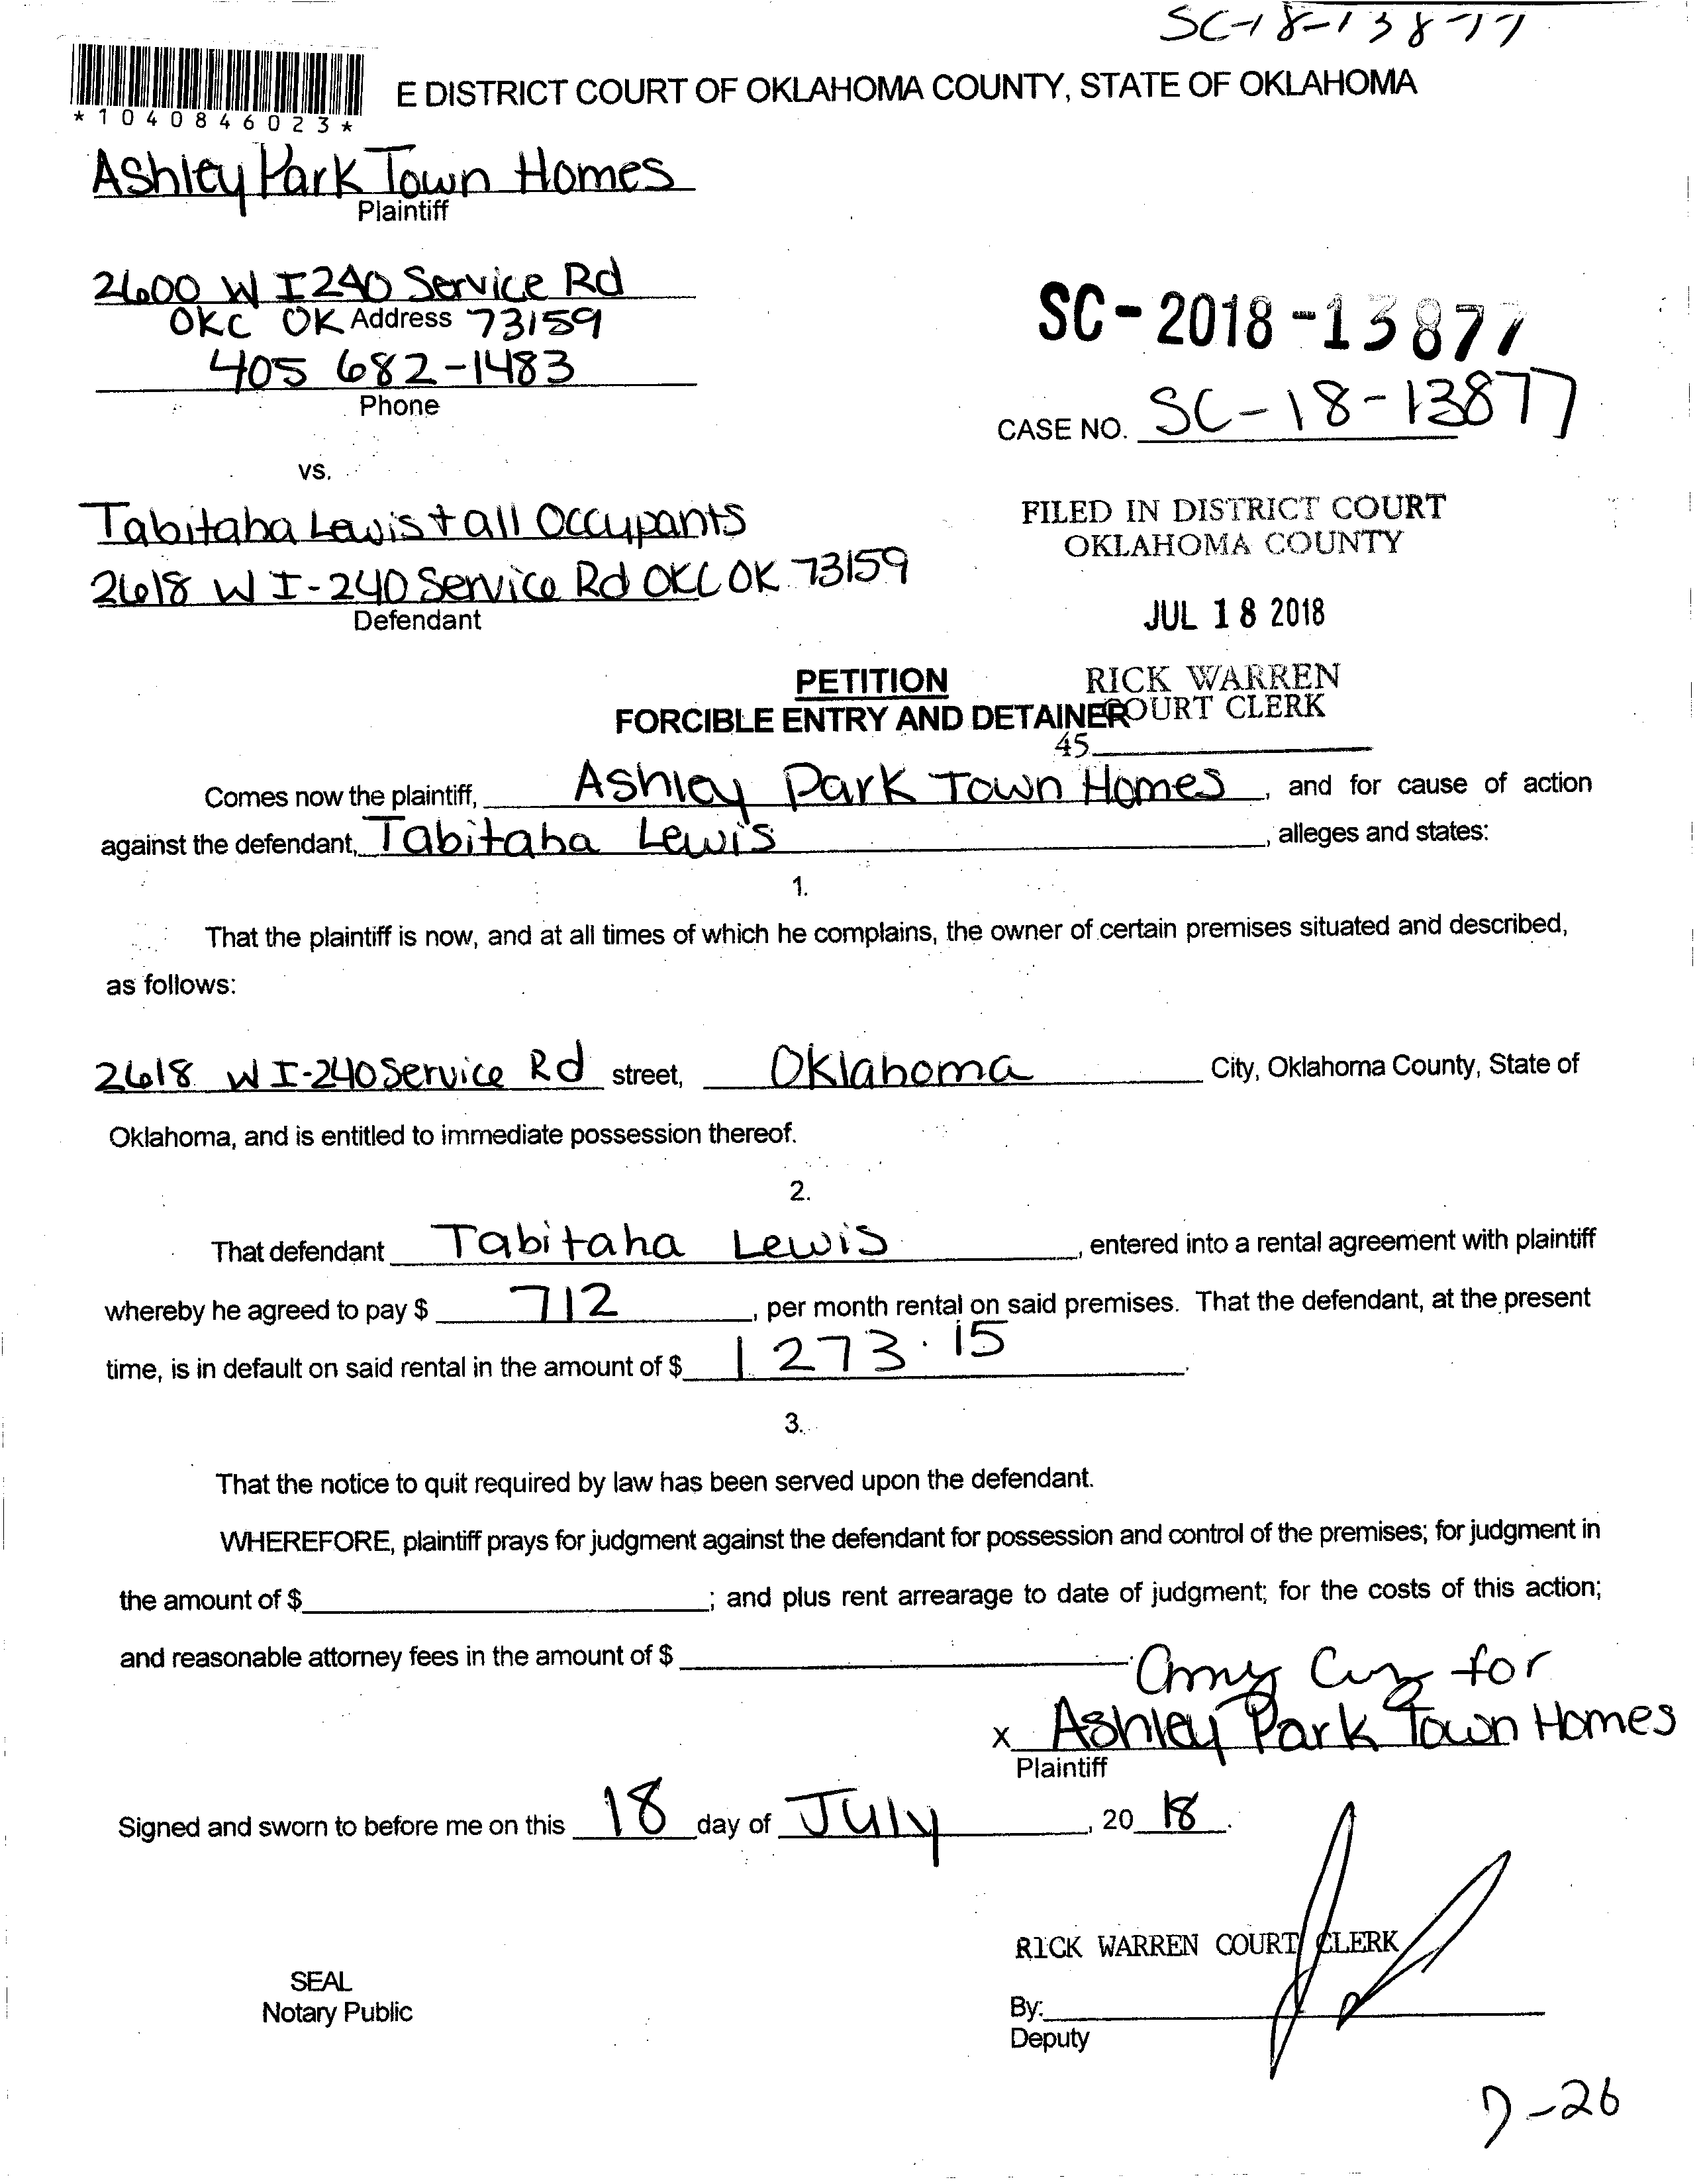 SC-18-13877
*1040846023*
E DISTRICT COURT OF OKLAHOMA COUNTY, STATE OF OKLAHOMA
Ashley Park Town Homes
Plaintiff
2600 W I 240 Service Rd
OKC OK Address 73159
405 682-1483
Phone
SC-2018-13877
CASE NO. SC-18-13877
vs.
Tabitaha Lewis + all Occupants
2618 W I-240 Service Rd OKC OK 73159
Defendant
FILED IN DISTRICT COURT
OKLAHOMA COUNTY
JUL 18 2018
RICK WARREN
COURT CLERK
45
PETITION
FORCIBLE ENTRY AND DETAINER
Comes now the plaintiff, Ashley Park Town Homes, and for cause of action
against the defendant, Tabitaha Lewis, alleges and states:
1.
That the plaintiff is now, and at all times of which he complains, the owner of certain premises situated and described,
as follows:
2618 W I-240 Service Rd street, Oklahoma City, Oklahoma County, State of
Oklahoma, and is entitled to immediate possession thereof.
2.
That defendant Tabitaha Lewis, entered into a rental agreement with plaintiff
whereby he agreed to pay $ 712, per month rental on said premises. That the defendant, at the present
time, is in default on said rental in the amount of $ 1273.15.
3.
That the notice to quit required by law has been served upon the defendant.
WHEREFORE, plaintiff prays for judgment against the defendant for possession and control of the premises; for judgment in
the amount of $ ; and plus rent arrearage to date of judgment; for the costs of this action;
and reasonable attorney fees in the amount of $ .
Amy for
x Ashley Park Town Homes
Plaintiff
Signed and sworn to before me on this 18 day of July, 20 18.
RICK WARREN COURT CLERK
SEAL
Notary Public
By:
Deputy
D-26